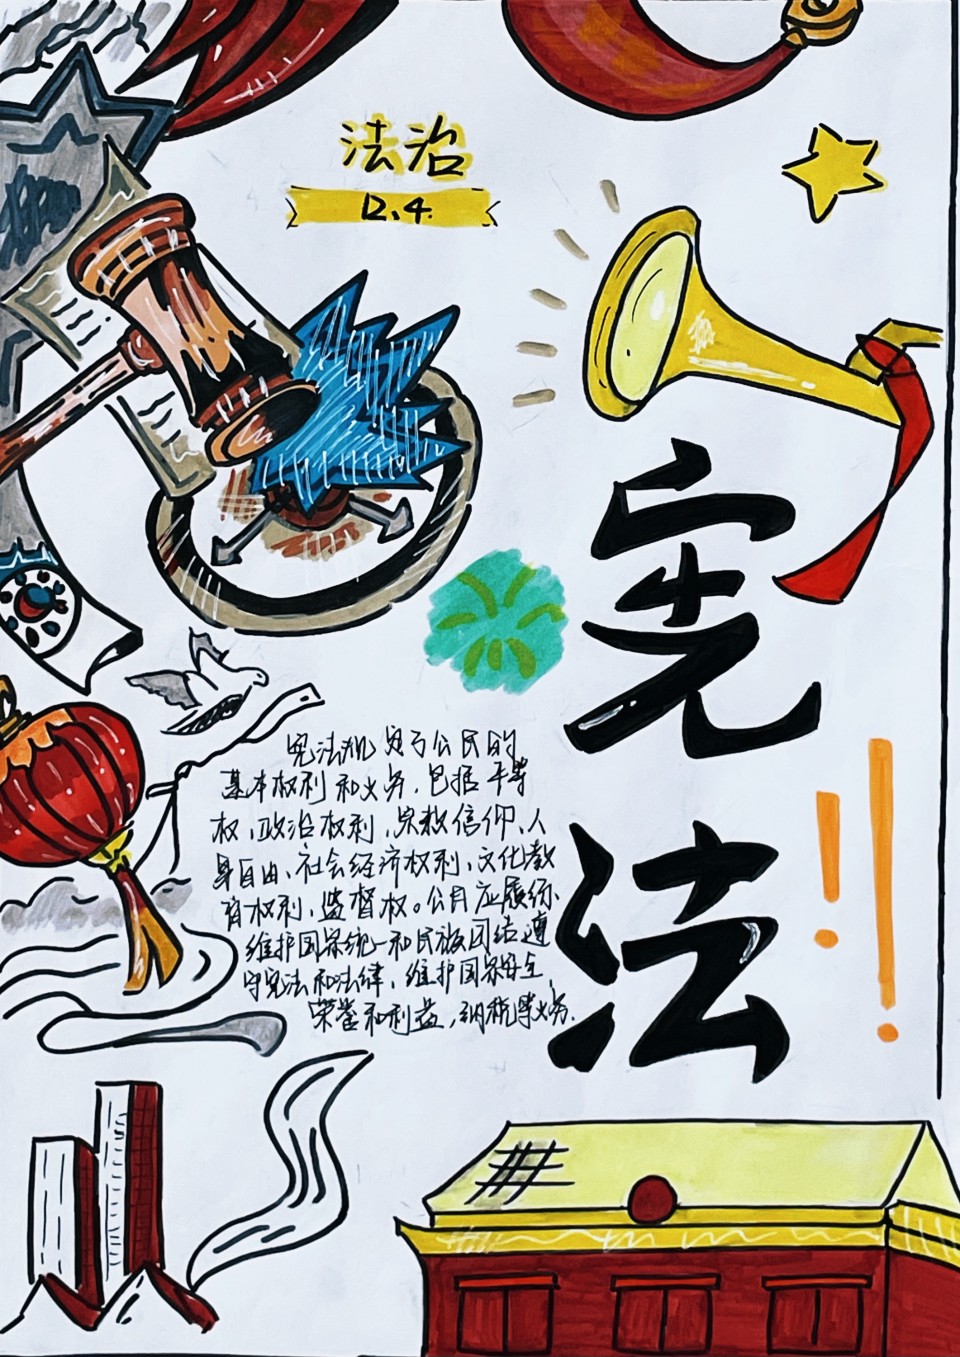 法治
12.4.
宪法！！
宪法规定了公民的
基本权利和义务，包括平等
权、政治权利、宗教信仰、人
身自由、社会经济权利、文化教
育权利、监督权。公民应履行
维护国家统一和民族团结遵
守宪法和法律，维护国家安全、
荣誉和利益，纳税等义务.